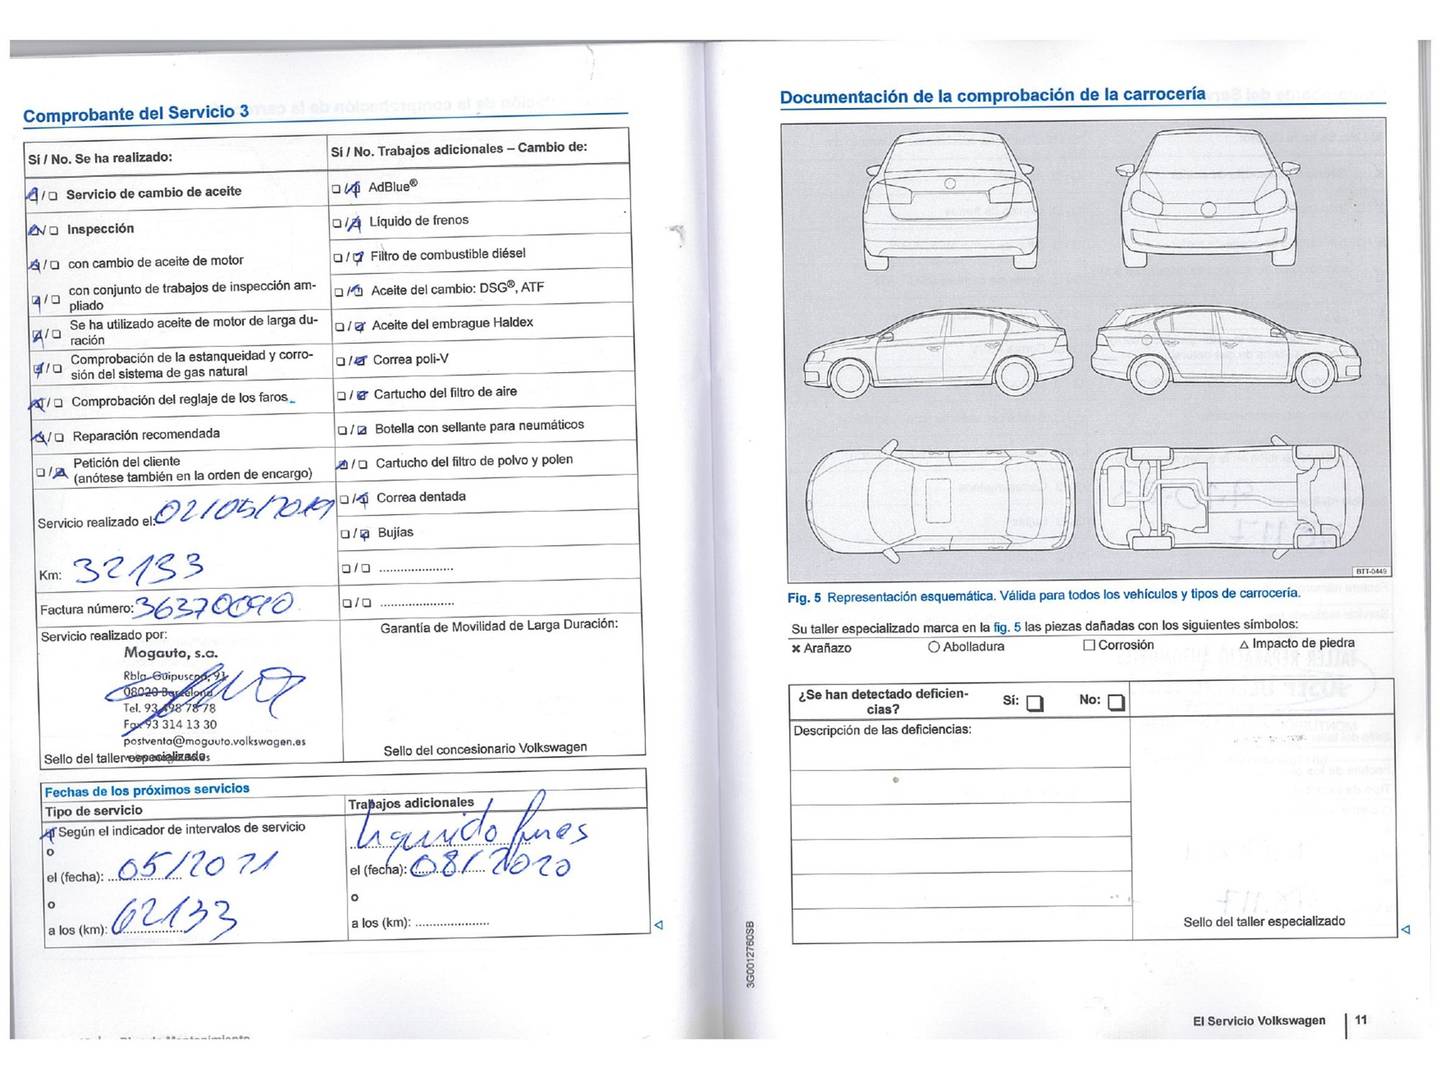 Comprobante del Servicio 3
Sí / No. Se ha realizado:
Servicio de cambio de aceite
Inspección
con cambio de aceite de motor
con conjunto de trabajos de inspección am-
pliado
Se ha utilizado aceite de motor de larga du-
ración
Comprobación de la estanqueidad y corro-
sión del sistema de gas natural
Comprobación del reglaje de los faros
Reparación recomendada
Petición del cliente
(anótese también en la orden de encargo)
Servicio realizado el: 02/05/2019
Km: 32133
Factura número: 36370090
Servicio realizado por:
Mogauto, s.a.
Rbla. Guipuscoa, 91
08020 Barcelona
Tel. 93 498 78 78
Fax 93 314 13 30
postventa@mogauto.volkswagen.es
Sello del taller especializado
Sí / No. Trabajos adicionales – Cambio de:
AdBlue®
Líquido de frenos
Filtro de combustible diésel
Aceite del cambio: DSG®, ATF
Aceite del embrague Haldex
Correa poli-V
Cartucho del filtro de aire
Botella con sellante para neumáticos
Cartucho del filtro de polvo y polen
Correa dentada
Bujías
Garantía de Movilidad de Larga Duración:
Sello del concesionario Volkswagen
Fechas de los próximos servicios
Tipo de servicio
Según el indicador de intervalos de servicio
o
el (fecha): 05/2021
o
a los (km): 62133
Trabajos adicionales
Liquido frenos
el (fecha): 08/2020
o
a los (km):
3G0012760SB
Documentación de la comprobación de la carrocería
BTT-0449
Fig. 5 Representación esquemática. Válida para todos los vehículos y tipos de carrocería.
Su taller especializado marca en la fig. 5 las piezas dañadas con los siguientes símbolos:
× Arañazo ○ Abolladura □ Corrosión △ Impacto de piedra
¿Se han detectado deficien-
cias? Sí: □ No: □
Descripción de las deficiencias:
Sello del taller especializado
El Servicio Volkswagen 11